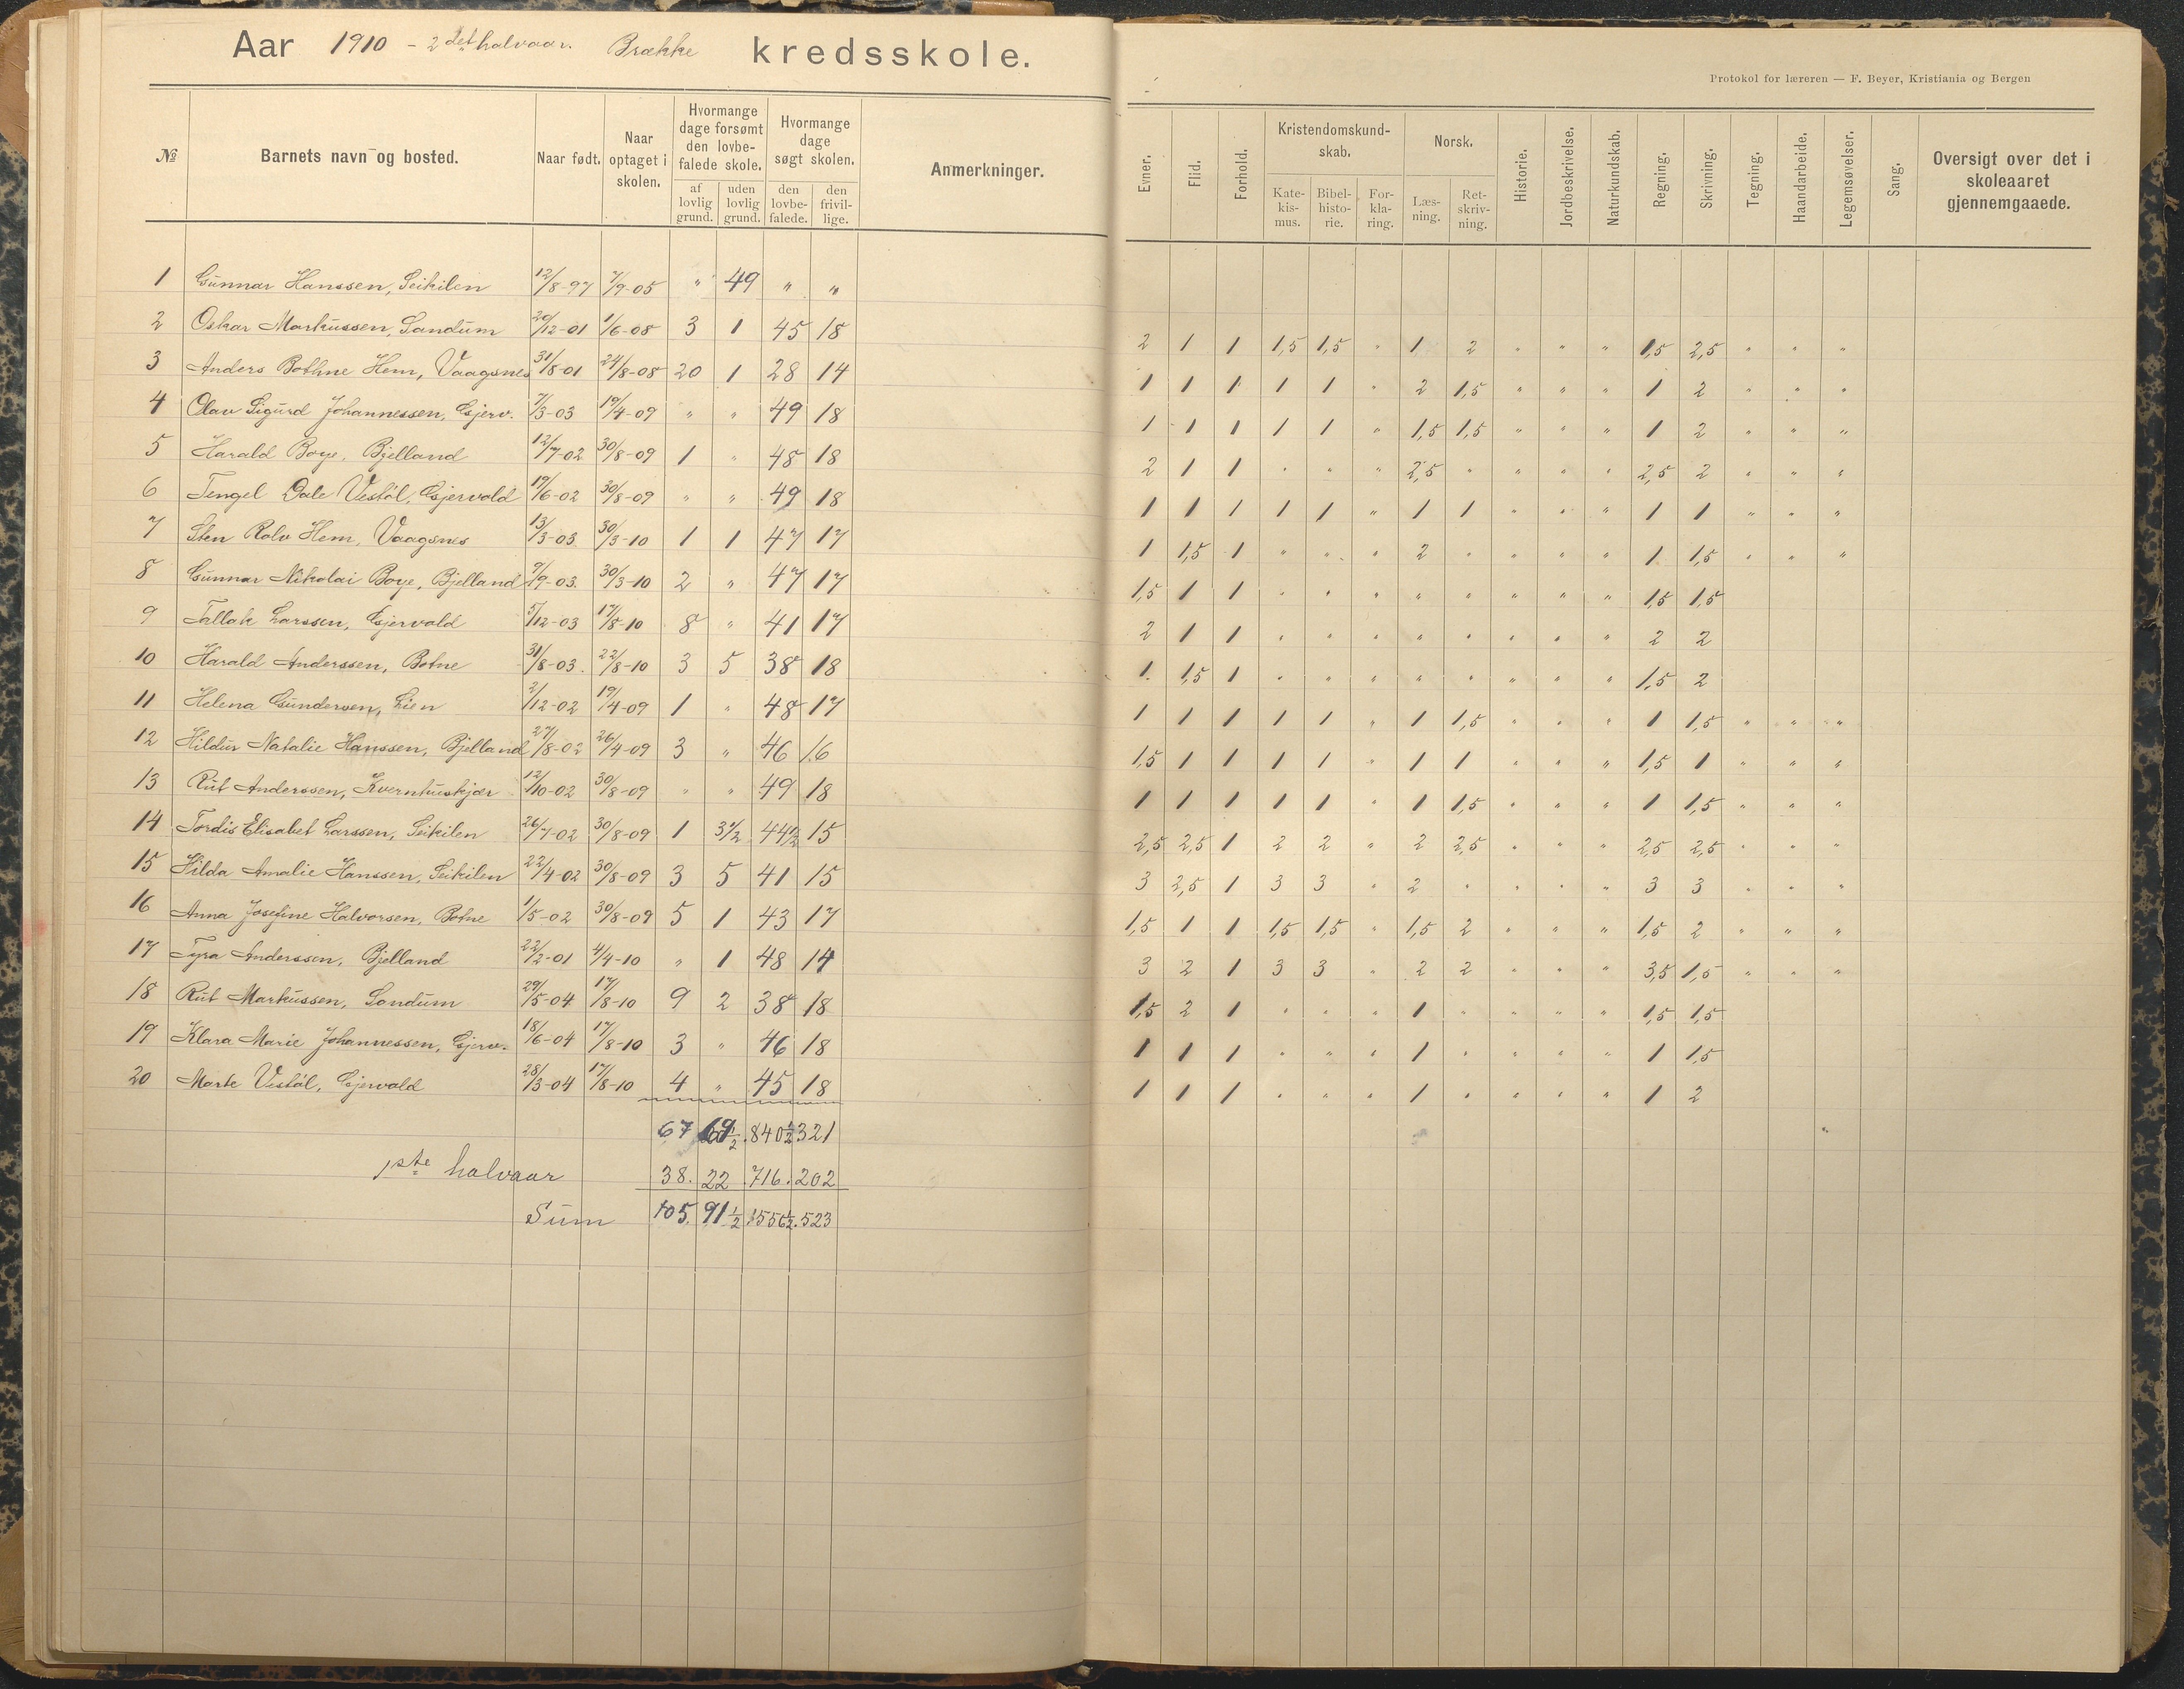 Aar 1910 - 2det halvaar. Brække kredsskole.
Protokol for læreren — F. Beyer, Kristiania og Bergen
№ Barnets navn og bosted. Naar født. Naar optaget i skolen. Hvormange dage forsømt den lovbefalede skole. af lovlig grund. uden lovlig grund. Hvormange dage søgt skolen. den lovbefalede. den frivillige. Anmerkninger. Evner. Flid. Forhold. Kristendomskundskab. Katekismus. Bibelhistorie. Forklaring. Norsk. Læsning. Retskrivning. Historie. Jordbeskrivelse. Naturkundskab. Regning. Skrivning. Tegning. Haandarbeide. Legemsøvelser. Sang. Oversigt over det i skoleaaret gjennemgaaede.
1 Gunnar Hanssen, Seikilen 12/8-97 7/9-05 " 49 " "
2 Oskar Markussen, Sandum 20/12-01 1/6-08 3 1 45 18 2 1 1 1,5 1,5 " 1 2 " " " 1,5 2,5 " " "
3 Anders Bothne Hem, Vaagsnes 31/8-01 24/8-08 20 1 28 14 1 1 1 1 1 " 2 1,5 " " " 1 2 " " "
4 Olav Sigurd Johannessen, Gjerv. 7/3-03 19/4-09 " " 49 18 1 1 1 1 1 " 1,5 1,5 " " " 1 2 " " "
5 Harald Boye, Bjelland 12/7-02 30/8-09 1 " 48 18 2 1 1 " " " 2,5 " " " " 2,5 2 " " "
6 Tengel Dale Vestøl, Gjervold 19/6-02 30/8-09 " " 49 18 1 1 1 1 1 " 1 1 " " " 1 1 " " "
7 Sten Rolv Hem, Vaagsnes 13/3-03 30/3-10 1 1 47 17 1 1,5 1 " " " 2 " " " " 1 1,5 " " "
8 Gunnar Nikolai Boye, Bjelland 7/9-03. 30/3-10 2 " 47 17 1,5 1 1 " " " " " " " " 1,5 1,5
9 Tallak Larssen, Gjervold 5/12-03 17/8-10 8 " 41 17 2 1 1 " " " " " " " " 2 2
10 Harald Anderssen, Botne 31/8-03. 22/8-10 3 5 38 18 1. 1,5 1 " " " " " " " " 1,5 2
11 Helena Gundersen, Lien 2/12-02 19/4-09 1 " 48 17 1 1 1 1 1 " 1 1,5 " " " 1 1,5 " " "
12 Hildur Natalie Hanssen, Bjelland 27/8-02 26/4-09 3 " 46 16 1,5 1 1 1 1 " 1 1 " " " 1,5 1 " " "
13 Rut Anderssen, Kvernhuskjær 12/10-02 30/8-09 " " 49 18 1 1 1 1 1 " 1 1,5 " " " 1 1,5 " " "
14 Tordis Elisabet Larssen, Seikilen 26/7-02 30/8-09 1 3½ 44½ 15 2,5 2,5 1 2 2 " 2 2,5 " " " 2,5 2,5 " " "
15 Hilda Amalie Hanssen, Seikilen 22/4-02 30/8-09 3 5 41 15 3 2,5 1 3 3 " 2 " " " " 3 3 " " "
16 Anna Josefine Halvorsen, Botne 1/5-02 30/8-09 5 1 43 17 1,5 1 1 1,5 1,5 " 1,5 2 " " " 1,5 2 " " "
17 Tyra Anderssen, Bjelland 22/2-01 4/4-10 " 1 48 14 3 2 1 3 3 " 2 2 " " " 3,5 1,5 " " "
18 Rut Markussen, Sandum 29/5-04 17/8-10 9 2 38 18 1,5 2 1 " " " 1 " " " " 1,5 1,5
19 Klara Marie Johannessen, Gjerv. 18/6-04 17/8-10 3 " 46 18 1 1 1 " " " 1 " " " " 1 1,5
20 Marte Vestøl, Gjervold 28/3-04 17/8-10 4 " 45 18 1 1 1 " " " 1 " " " " 1 2
67 69½. 840½ 321
1ste halvaar 38. 22 .716. 202
Sum 105. 91½ 1556½. 523